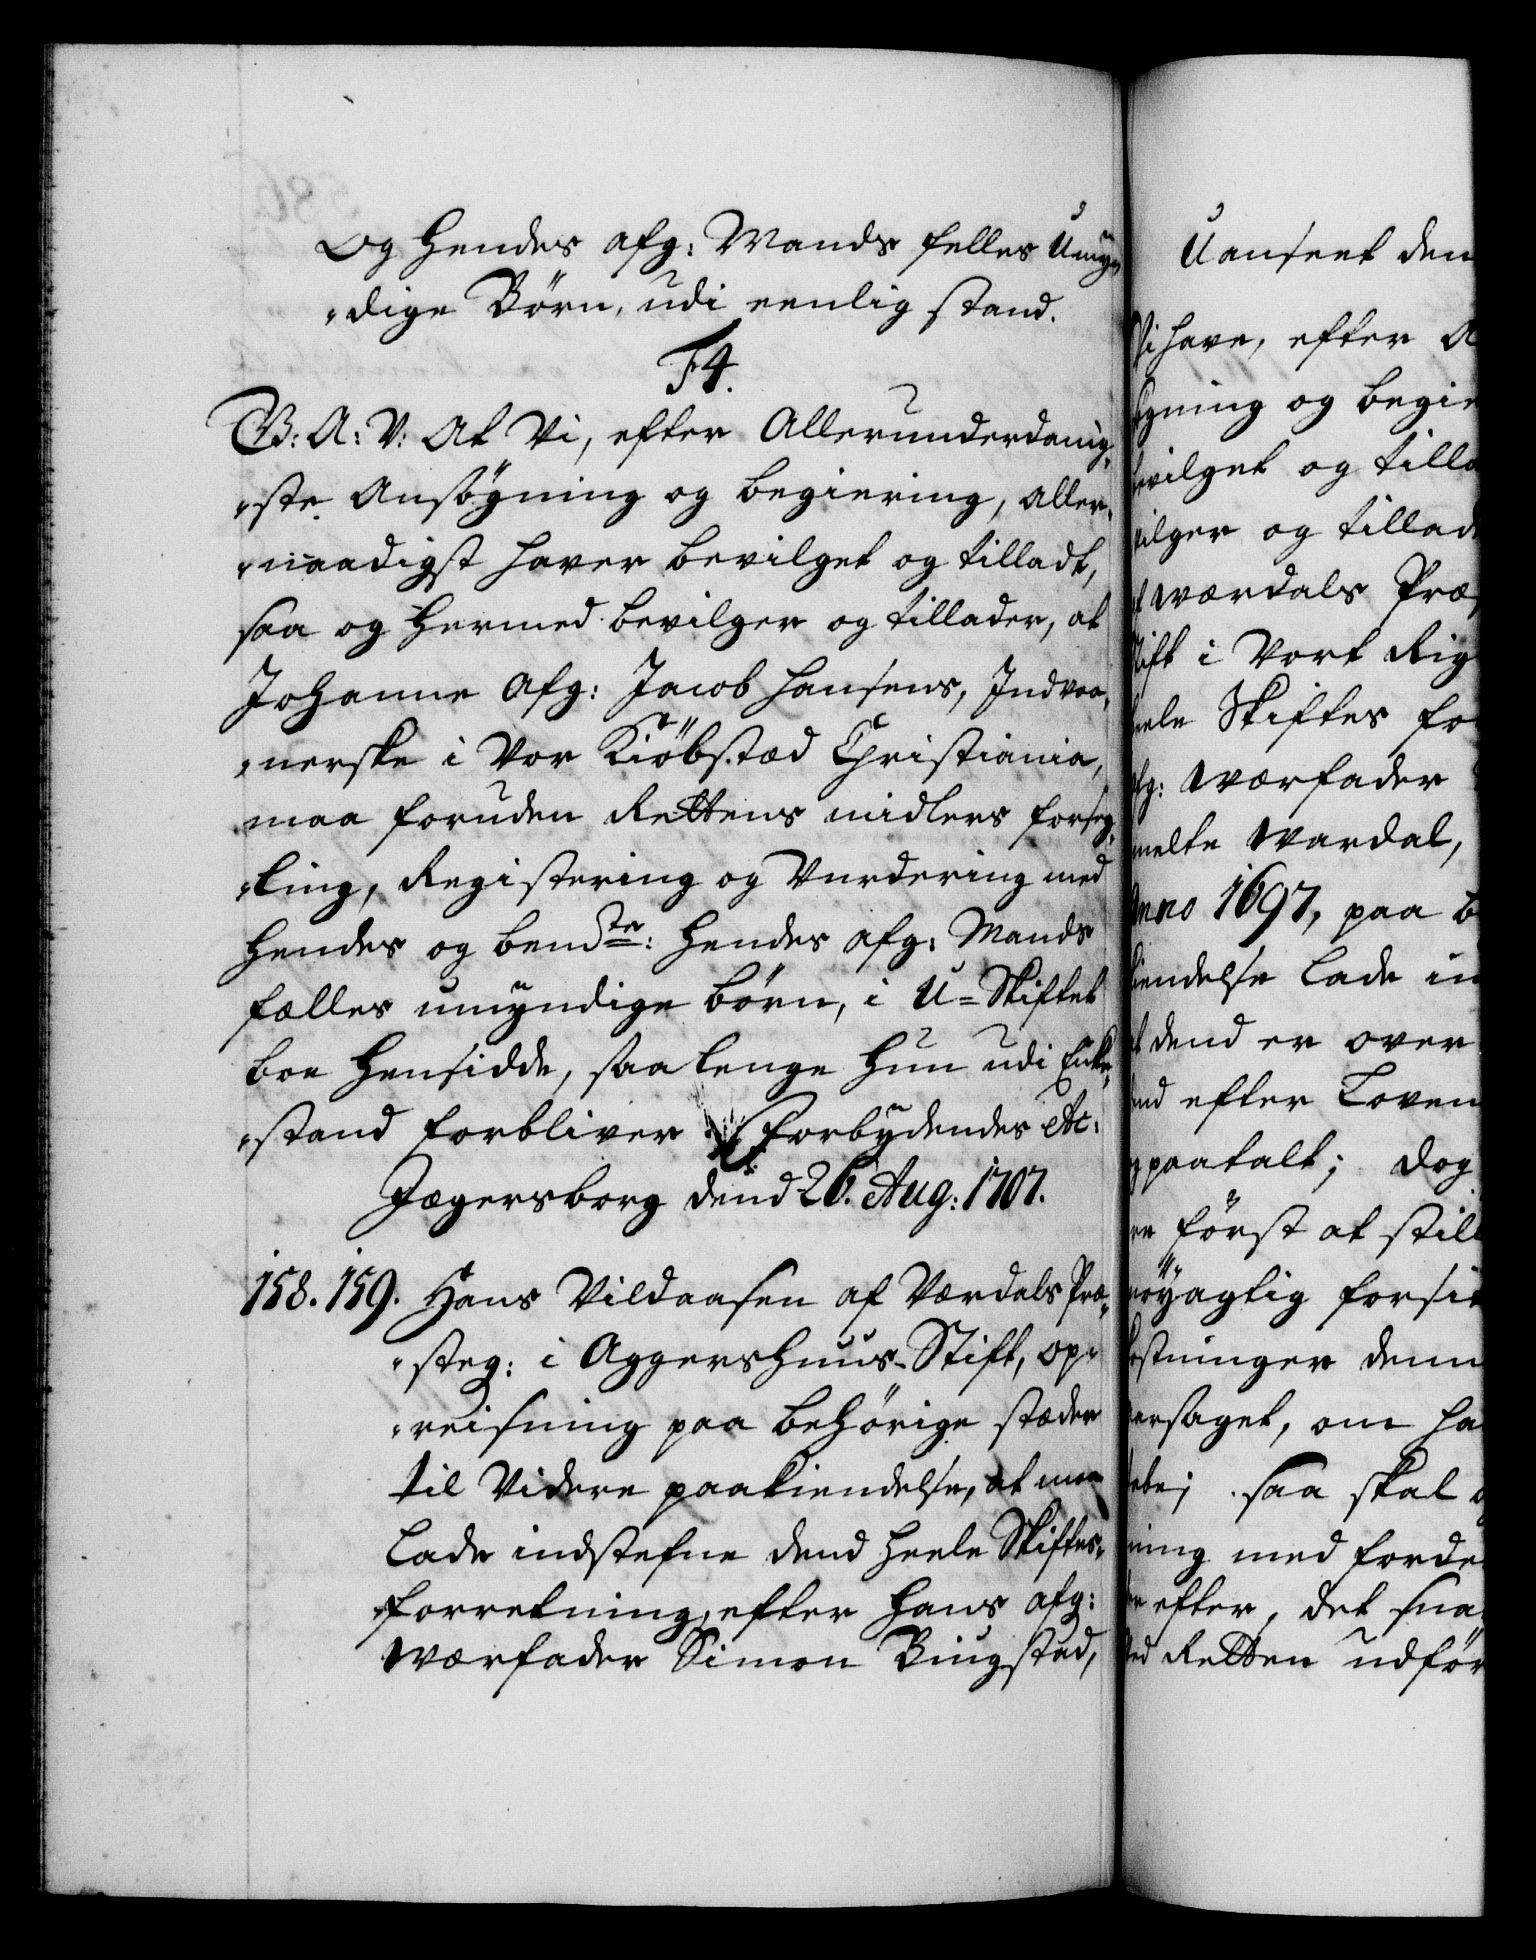 Og Hendes afg: Mands felles Umyn
„dige Börn, udi eenlig stand.
F4.
G: A: V: At Vi, efter Allerunderdanig„
„ste Ansögning og begiering, aller„
„naadigst haver bevilget og tilladt,
saa og Hermed bevilger og tillader, at
Johanne Afg: Jacob Hansens, Indvaa„
„nerske i Vor Kiöbstæd Christiania,
maa foruden Rettens midlers forseg„
„ling, Registering og Vurdering med
Hendes og bemte: Hendes afg: Mands
fælles umyndige börn, i U-Skiftet
boe Hensidde, saa lenge Hun udi Enke„
„stand forbliver. Forbydendes etc:
Jægersborg dend 26. Aug: 1707.
158. 159. Hans Vildaasen af Værdals Præ„
„steg: i Aggershuus-Stift, op„
„reisning paa behörige stæder
til Videre paakiendelse, at maa
lade indstefne dend heele Skiftes„
forretning, efter Hans afg:
Værfader Simon Biugstad,
Uanseet den
Vi have, efter A
ögning og begie
bevilget og tilla
vilger og tillad
Værdals Præ
Stift i Vort Rig
heele Skiftes fo
afg: Værfader
melte Wardal,
Anno 1697, paa b
kiendelse lade in
at dend er over
end efter Loven
paatalt; dog
först at still
nöyagtig forsik
kostninger denn
versaget, om ha
saa skal
ning med forde
efter, det sna
ved Retten udför